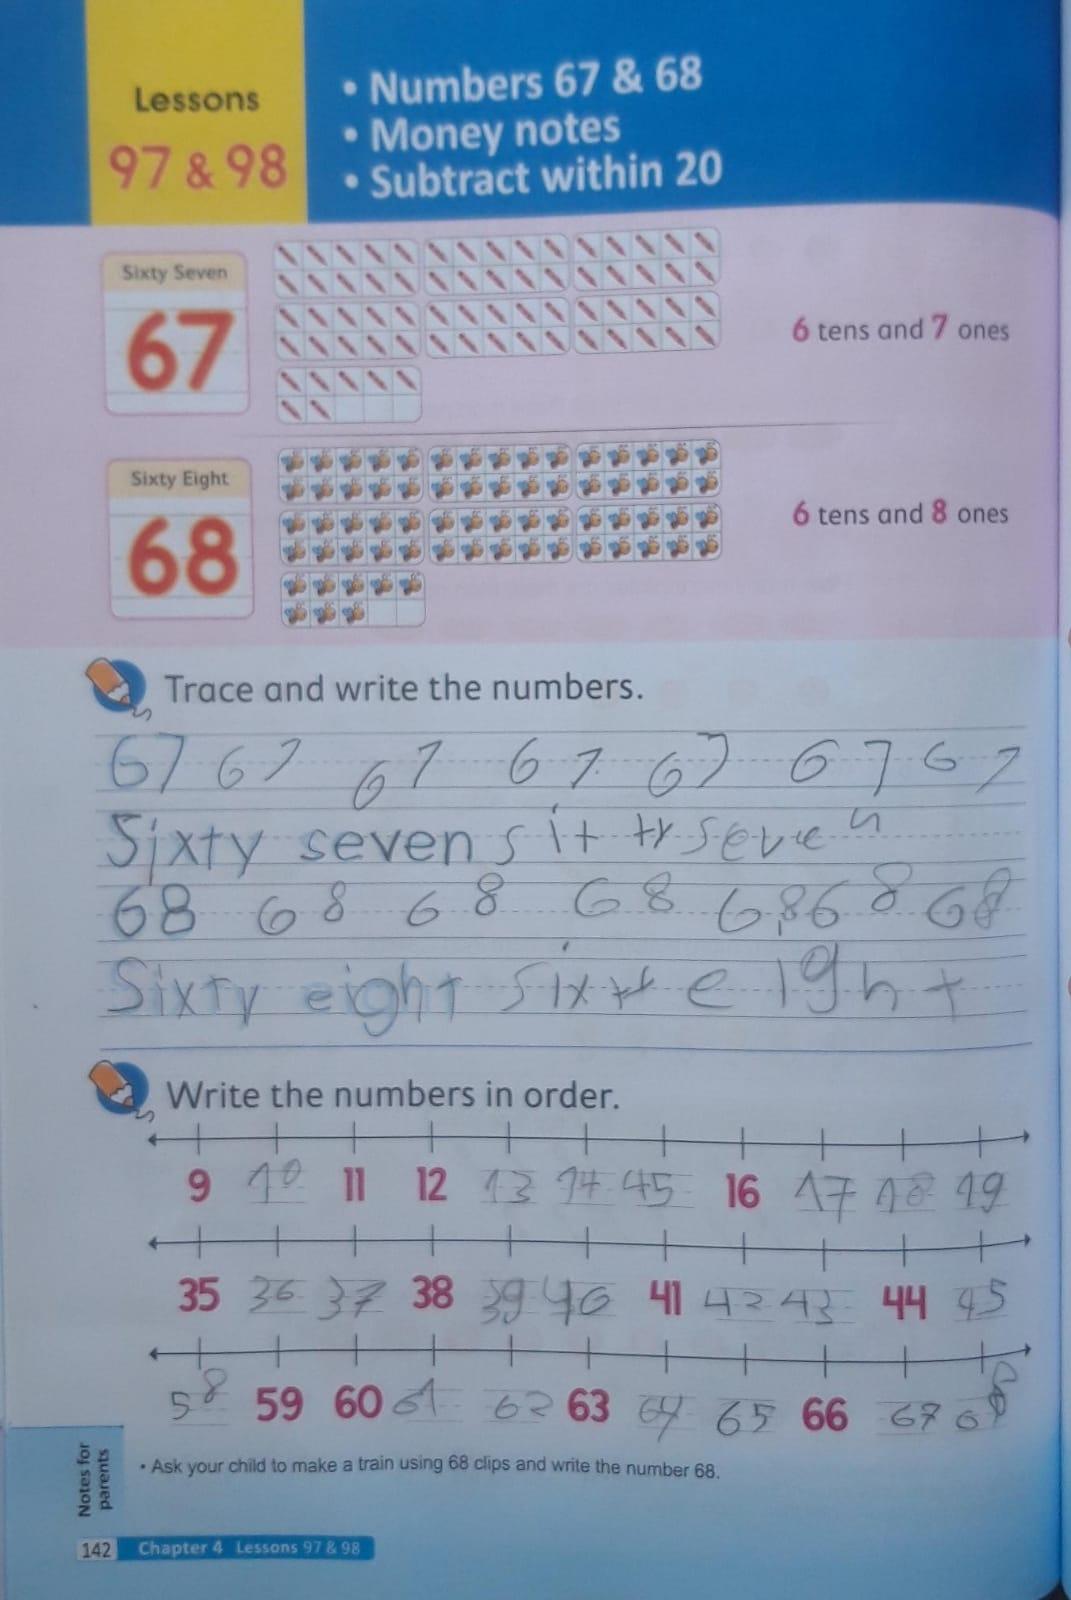 Lessons
97 & 98
• Numbers 67 & 68
• Money notes
• Subtract within 20
Sixty Seven
67
6 tens and 7 ones
Sixty Eight
68
6 tens and 8 ones
Trace and write the numbers.
67 67 67 67 67 67 67
Sixty seven sit ty seven
68 68 68 68 68 68 68
Sixty eight sixty eight
Write the numbers in order.
9 10 11 12 13 14 45 16 17 18 19
35 36 37 38 39 40 41 42 43 44 45
58 59 60 61 62 63 64 65 66 67 68
Notes for parents
• Ask your child to make a train using 68 clips and write the number 68.
142 Chapter 4 Lessons 97 & 98